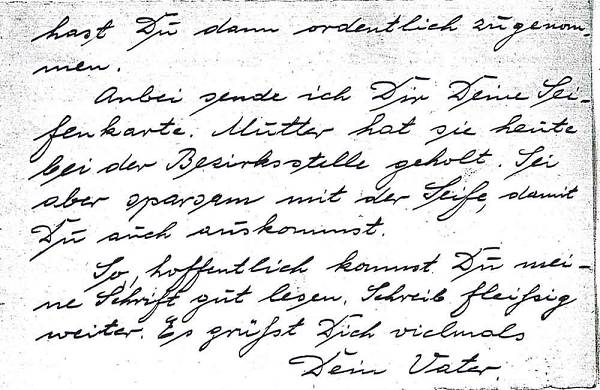 hast Du dann ordentlich zugenom-
men.
Anbei sende ich Dir Deine Sei-
fenkarte. Mutter hat sie heute
bei der Bezirksstelle geholt. Sei
aber sparsam mit der Seife, damit
Du auch auskommst.
So, hoffentlich kannst Du mei-
ne Schrift gut lesen. Schreib fleißig
weiter. Es grüßt Dich vielmals
Dein Vater.